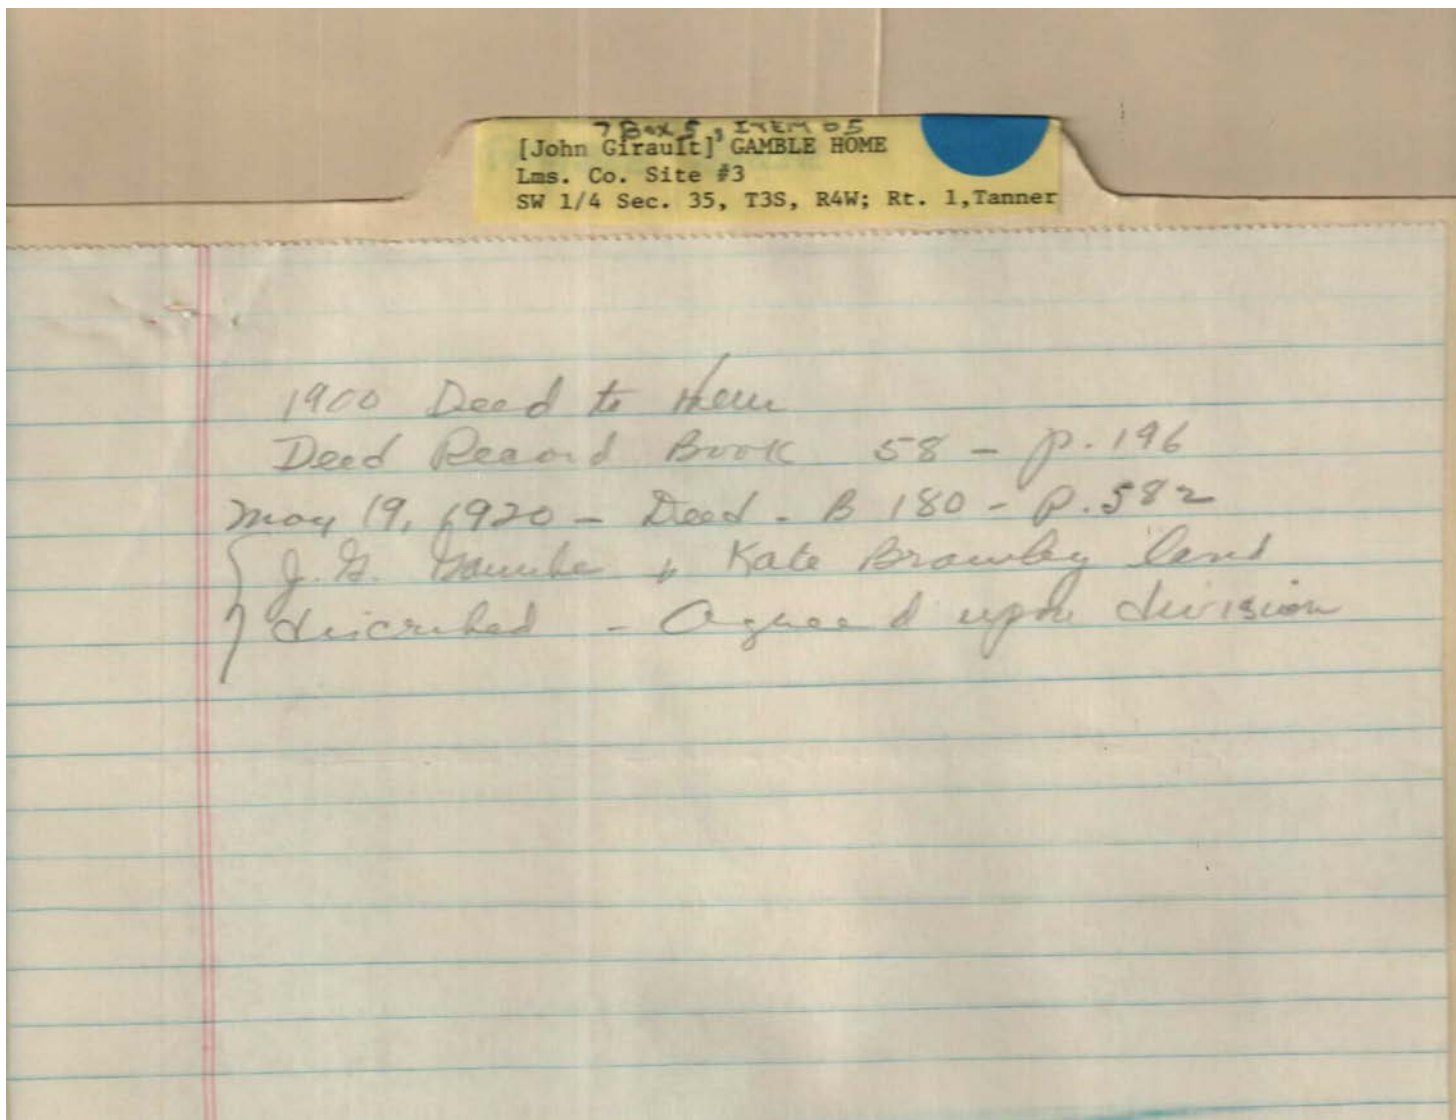 7 Box 5, ITEM 05
[John Girault] GAMBLE HOME
Lms. Co. Site #3
SW 1/4 Sec. 35, T3S, R4W; Rt. 1,Tanner
1900 Deed to them
Deed Record Book 58 - p. 196
May 19, 1920 - Deed - B 180 - p. 582
J. G. Gamble + Kate Brawley land
discribed - Agreed upon division